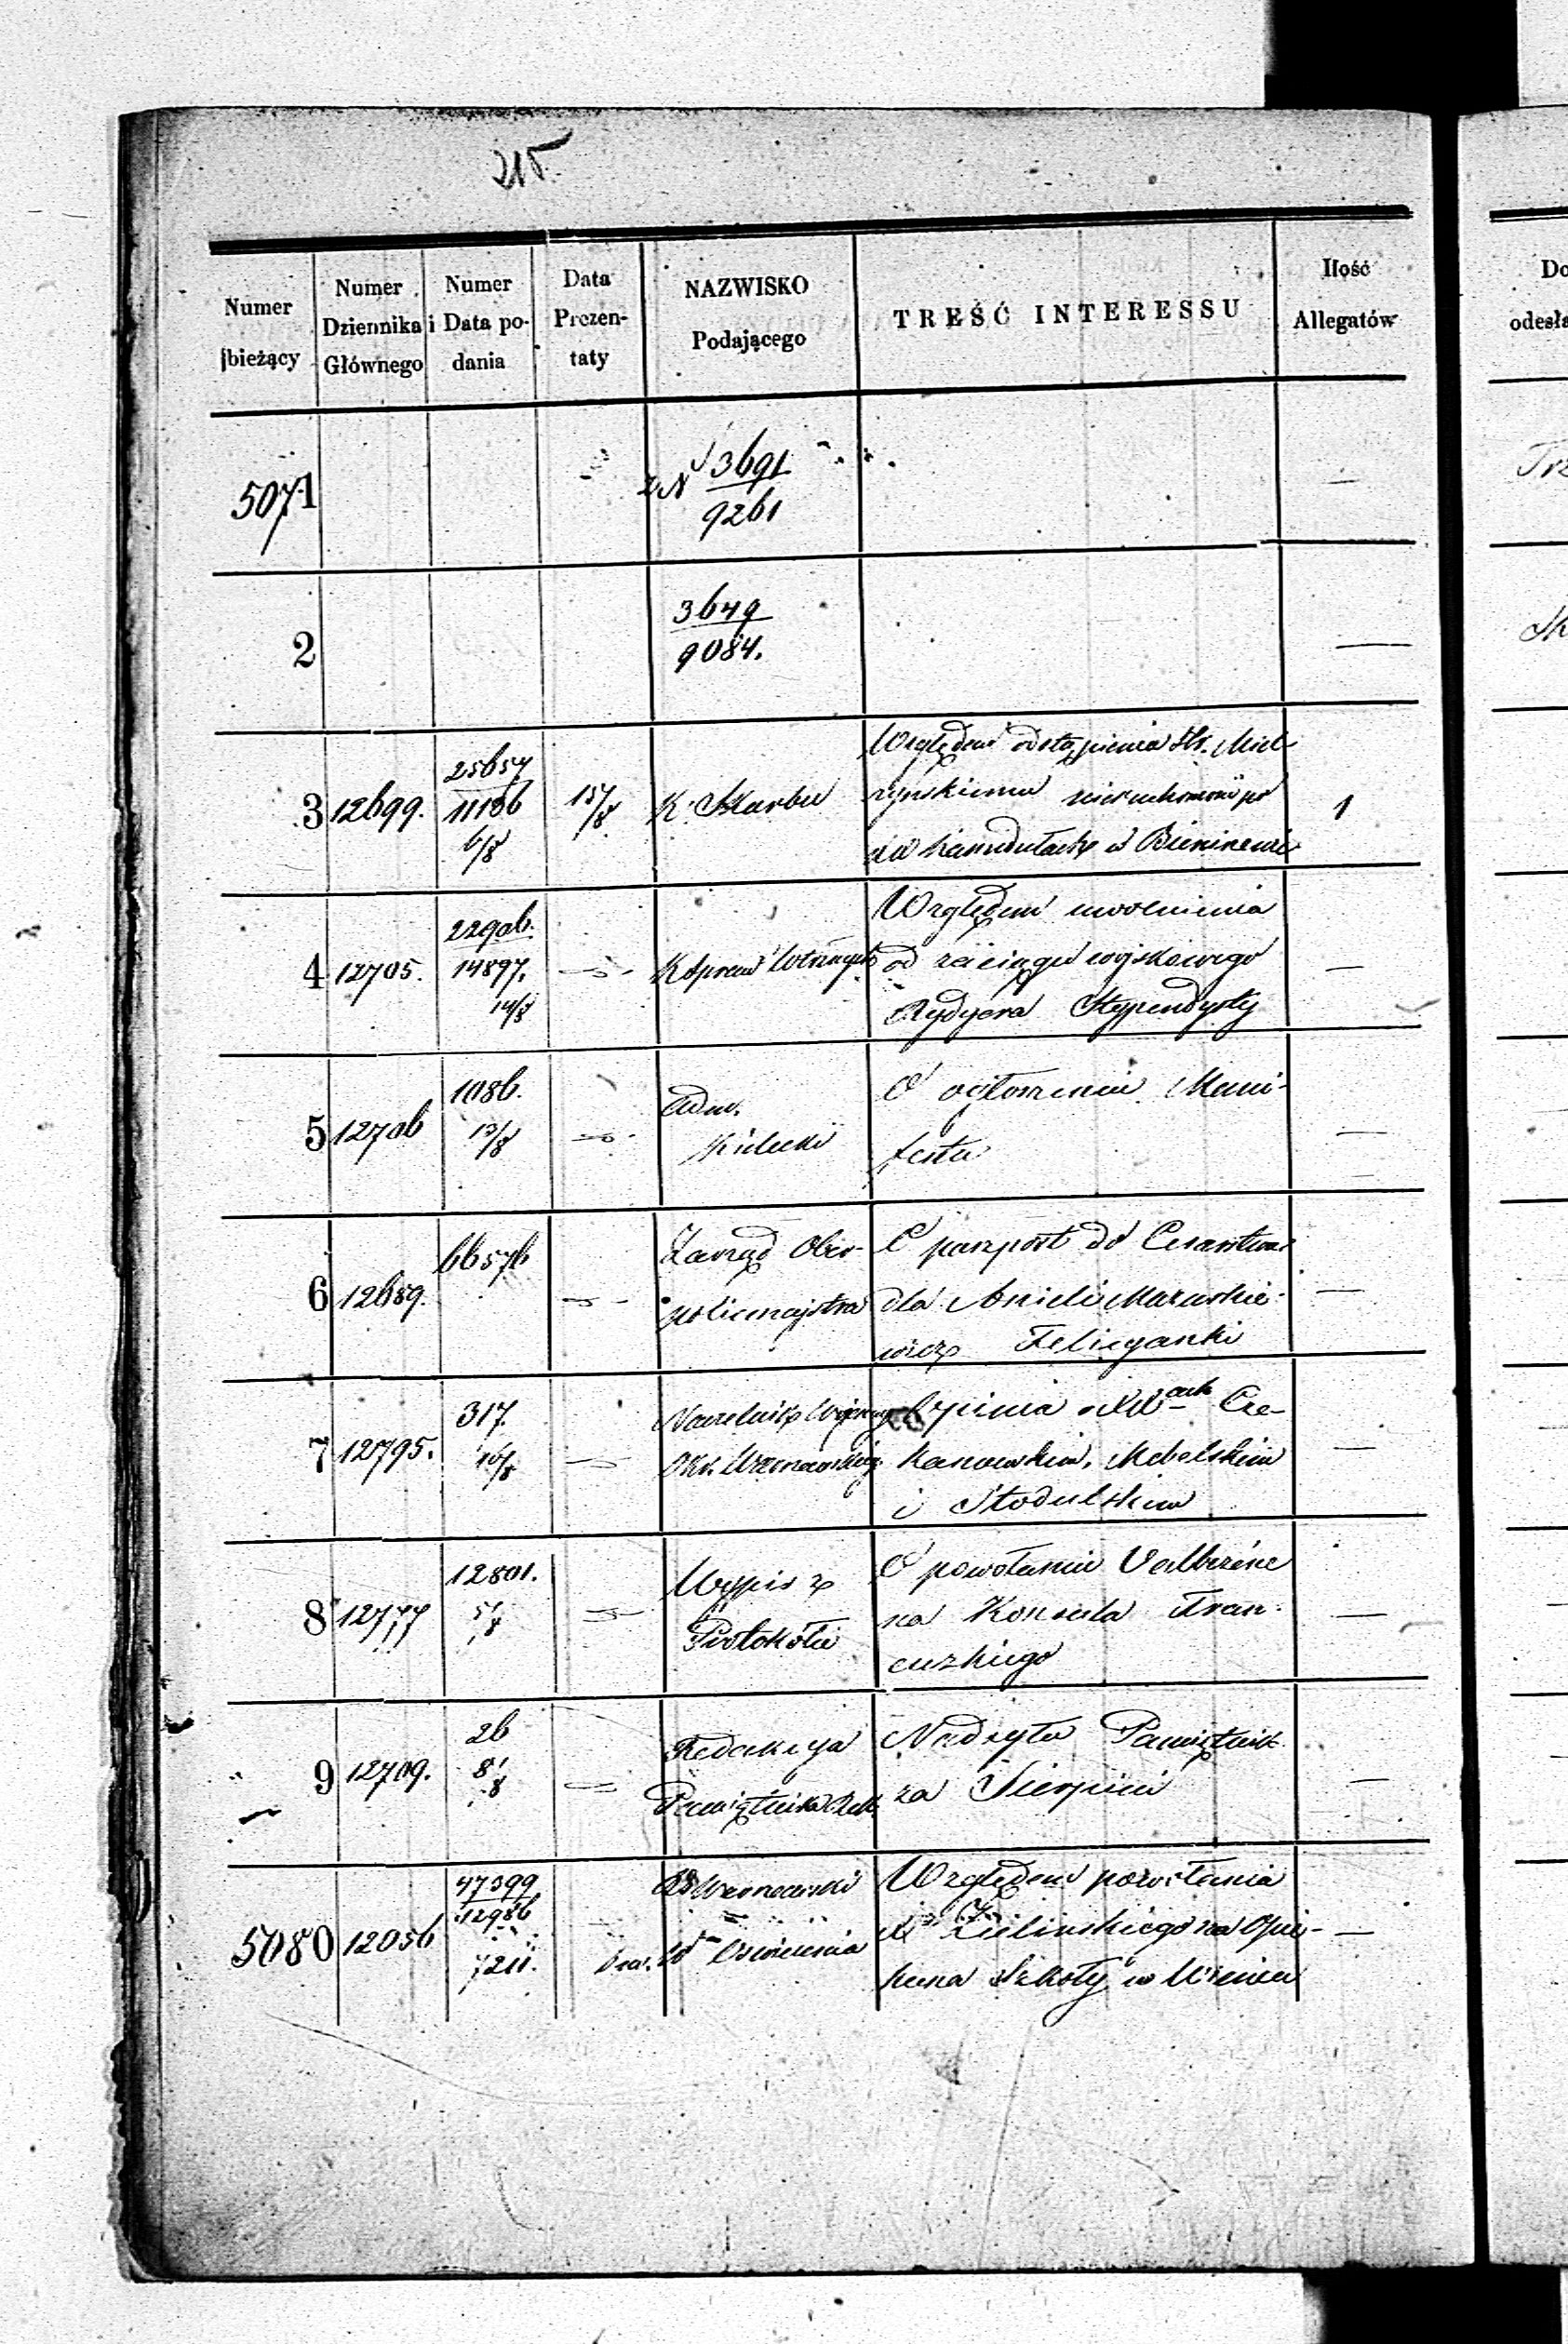 215.
Numer bieżący
Numer Dziennika Głównego
Numer i Data podania
Data Prezentaty
NAZWISKO Podającego
TREŚĆ INTERESSU
Ilość Allegatów
Do
odesła
5071
z N 3691
9261
—
Trz
2
3649
9084.
—
3 12699.
25657
11136
6/8
15/8
K. Skarbu
Względem odstąpienia
rzyńskiemu nieruchomości po
1
4 12705.
22906.
14897.
14/8
K Spraw Wewnętrznych
Względem uwolnienia
od zaciągu wojskowego
Rydygera Stypendysty
—
5 12706
1086.
13/8
Adm.
Kielecki
O ogłoszeniu Mani-
festu
—
6 12689.
66576
Zarząd Ober-
policmajstra
O paszport do Cesarstwa
dla Anieli Mazurkie-
wicz Felicyanki
—
7 12795.
317.
16/8
Naczelnik Wojenny
Okr. Warszawskiego
Opinia o XX ach Cze-
kanowskim, Mebelskim
i Stodulskim
—
8 12777
12801.
5/8
Wypis z
Protokółu
O powołaniu Valbezene
na Konsula Fran-
cuzkiego
—
9 12709.
26
8/8
Redakcya
Pamiętnika Rel.
Nadsyła Pamiętnik
za Sierpień
—
5080 12056
47399
12986
7211.
RG Warszawski
Oświecenia
Względem pozostania
X Zielinskiego na Opie-
kuna Szkoły w
—